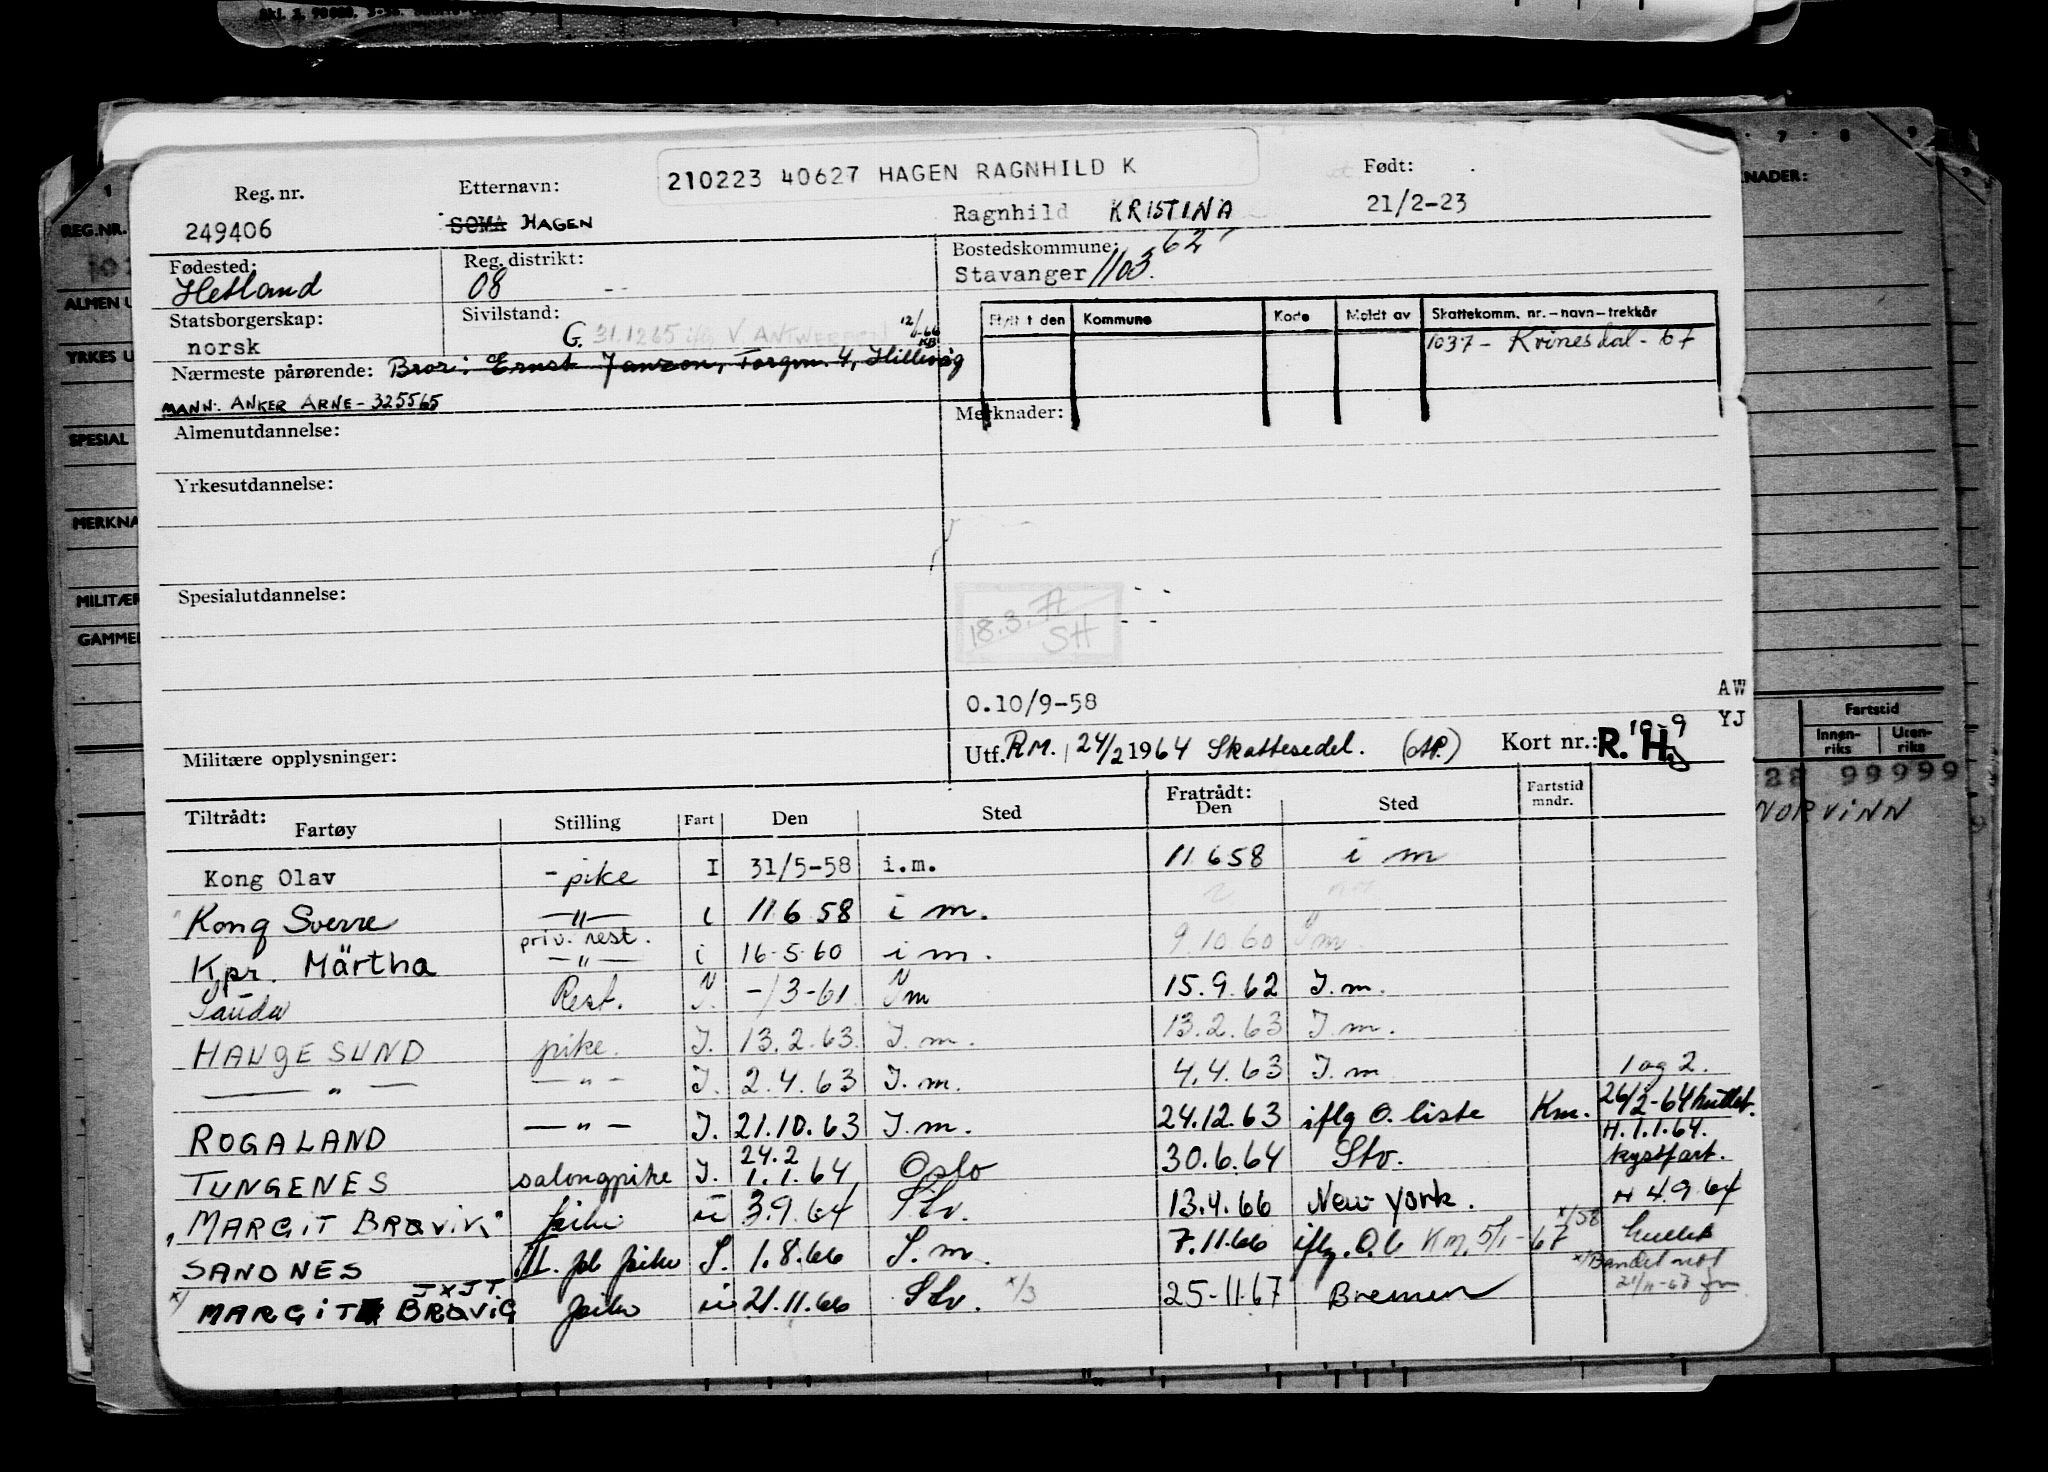 210223 40627 HAGEN RAGNHILD K
Reg. nr. Etternavn: Født:
249406 SOMA HAGEN Ragnhild KRISTINA 21/2-23
Fødested: Reg. distrikt: Bostedskommune: 62
Hetland 08 Stavanger 1103.
Statsborgerskap: Sivilstand:
norsk G. 31.12 65 V. ANTWERPEN 12/1-66 KB
Flytt t den Kommune Kode Meldt av Skattekomm. nr.-navn-trekkår
1037 - Kvinesdal - 67
Nærmeste pårørende: Bror: Ernst Janzon, Torgvn. 4, Hillevåg
MANN: ANKER ARNE - 325565
Merknader:
Almenutdannelse:
Yrkesutdannelse:
Spesialutdannelse:
18.3.71
SH
0.10/9-58
AW
YJ
Militære opplysninger:
Utf. RM. 24/2 1964 Skattesedel. Kort nr.: R.
Tiltrådt: Fratrådt: Fartstid
Fartøy Stilling Fart Den Sted Den Sted mndr.
Kong Olav - pike I 31/5-58 i.m. 11 6 58 i m
Kong Sverre —"— i 11 6 58 i m.
priv. rest.
Kpr. Märtha —"— i 16-5-60 i m. 9.10 60 I m.
Sauda Rest. I. -/3-61 I m 15.9.62 I.m.
HAUGESUND pike. I. 13.2.63. I.m. 13.2.63 I.m.
—"— —"— I. 2.4.63 I.m. 4.4.63 I.m 1 og 2.
ROGALAND —"— I. 21.10.63 I.m. 24.12.63 iflg O. liste Km. 26/2-64 hullet.
TUNGENES salongpike I. 24.2 1.1.64 Oslo 30.6.64 Stv. H. 1.1.64. kystfart.
"MARGIT BRØVIG" pike u 3.9.64 Stv. 13.4.66 New York. H 4.9.64
SANDNES pike I. 1.8.66 I.m. 7.11.66 iflg. O.l. Km. 5/1-67 hullet
x/ MARGIT BRØVIG JXJT. pike u 21.11.66 Stv. x/3 25-11.67 Bremen
REG.NR.
ALMEN U
YRKES U
SPESIAL
MERKNA
MILITÆR
GAMMEL
NADER:
Fartstid
Innen-riks Uten-riks
28 99999
NORVINN